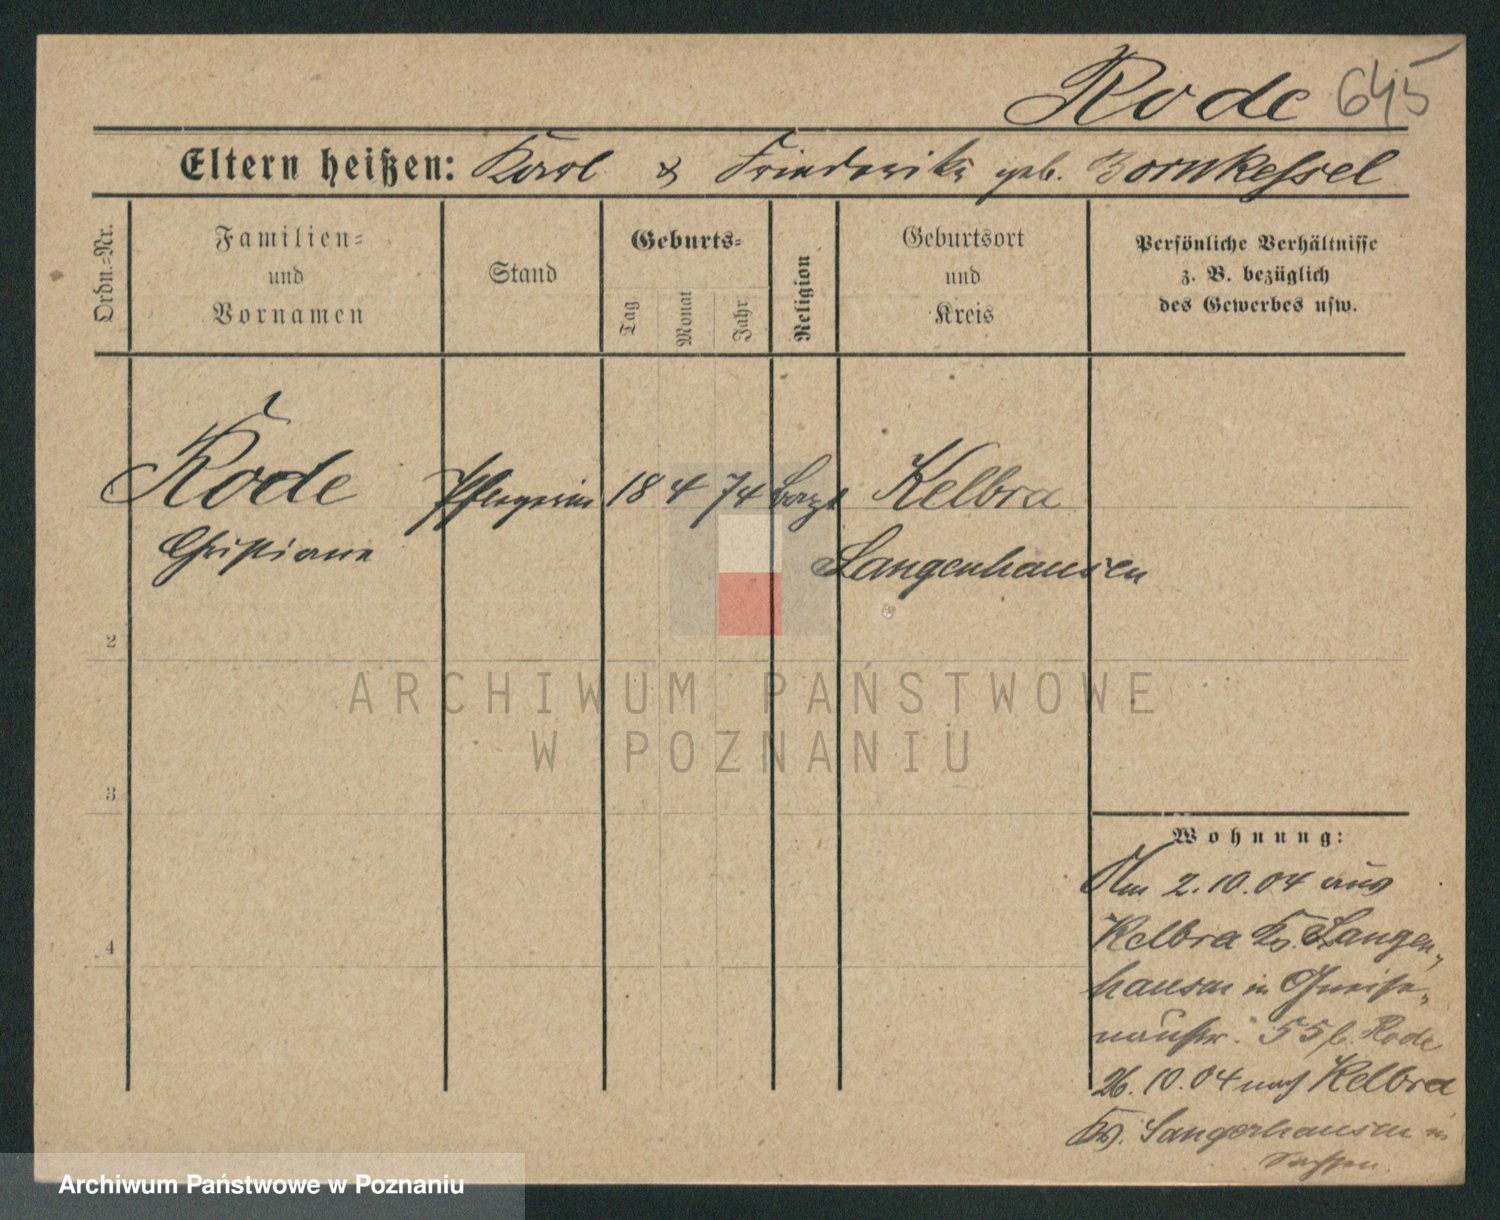 Rode 645
Eltern heißen: Karl & Friederike geb. Bornkessel
Ordn.-Nr.
Familien-
und
Vornamen
Stand
Geburts-
Tag
Monat
Jahr
Religion
Geburtsort
und
Kreis
Persönliche Verhältnisse
z. B. bezüglich
des Gewerbes usw.
Rode Pflegerin 18 4 74 Kelbra
Christiane Sangenhausen
2
3
4
Wohnung:
Am 2.10.04 aus
Kelbra Krs. Sangen-
hausen in Gneise-
naustr. 55 b. Rode
26.10.04 nach Kelbra
Krs. Sangerhausen in
Sachsen.
ARCHIWUM PAŃSTWOWE
W POZNANIU
Archiwum Państwowe w Poznaniu